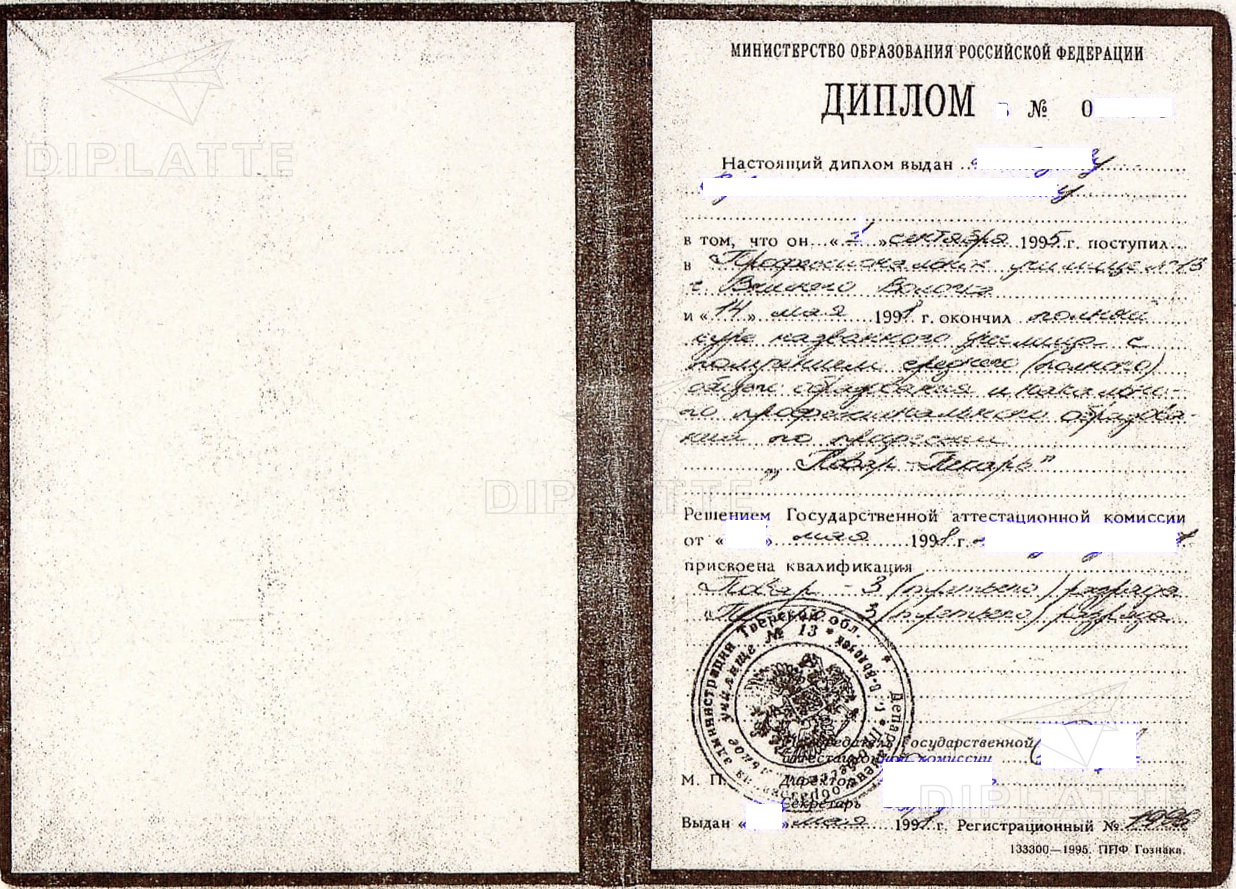 DIPLATTE
МИНИСТЕРСТВО ОБРАЗОВАНИЯ РОССИЙСКОЙ ФЕДЕРАЦИИ
ДИПЛОМ № 0
Настоящий диплом выдан
в том, что он « 1 » сентября 1995 г. поступил
в Профессиональное училище № 13
г. Вышнего Волочка
и « 14 » мая 1998 г. окончил полный
курс названного училища с
получением среднего (полного)
общего образования и начально-
го профессионального образова-
ния по профессии
„Повар-Пекарь"
DIPLATTE
Решением Государственной аттестационной комиссии
от « » мая 1998 г.
присвоена квалификация
Повар - 3 (третьего) разряда
3 (третьего) разряда
Председатель Государственной
аттестационной комиссии
М. П. Директор
Секретарь
DIPLATTE
Выдан « » мая 1998 г. Регистрационный №
133300—1995. ППФ Гознака.